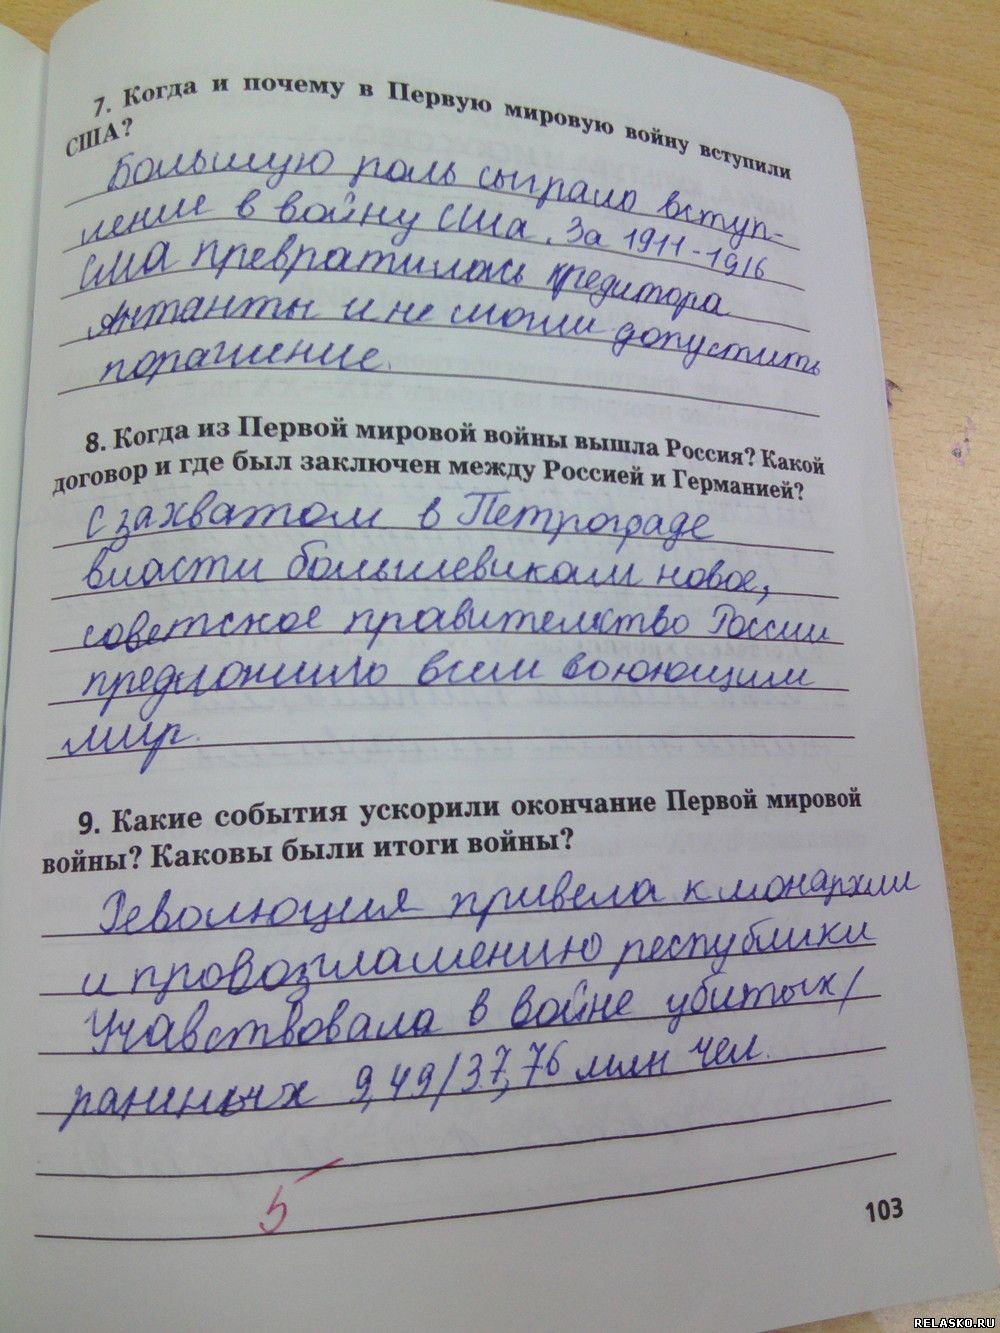 7. Когда и почему в Первую мировую войну вступили
США?
Большую роль сыграло вступ-
ление в войну США. За 1911-1916
США превратилась кредитора
Антанты и не могли допустить
поражение.
8. Когда из Первой мировой войны вышла Россия? Какой
договор и где был заключен между Россией и Германией?
С захватом в Петрограде
власти большевикам новое,
советское правительство России
предложило всем воюющим
мир.
9. Какие события ускорили окончание Первой мировой
войны? Каковы были итоги войны?
Революция привела к монархии
и провозглашению республики
Учавствовала в войне убитых/
раниных 9,49/37,76 млн чел.
5
103
RELASKO.RU